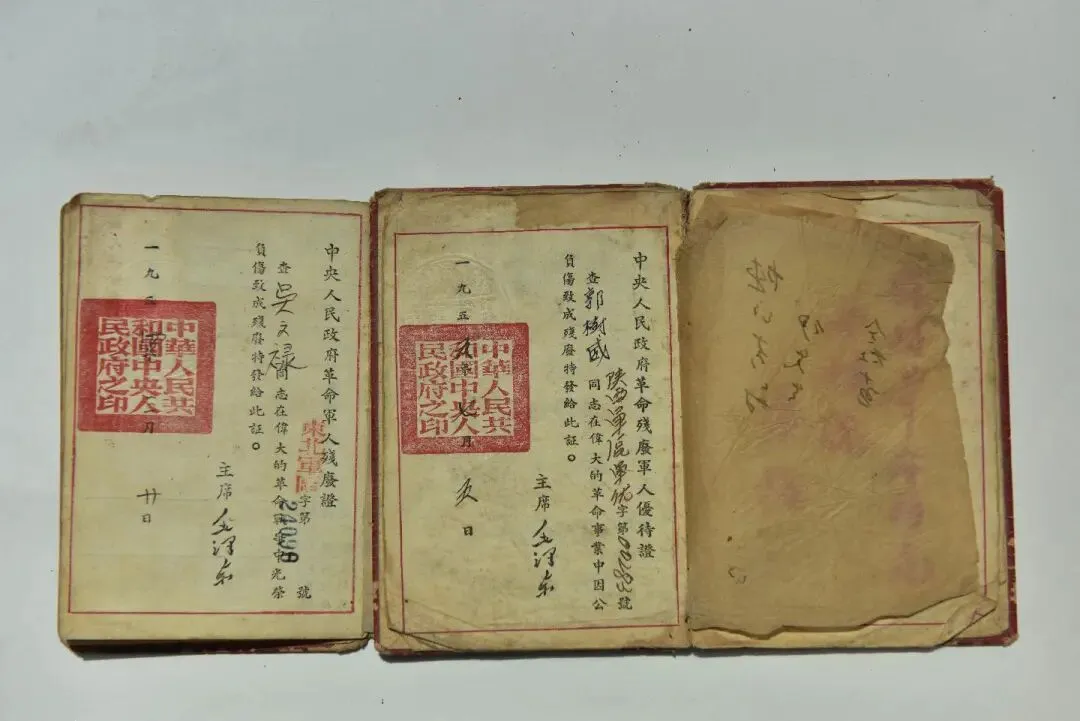 中央人民政府革命軍人殘廢證
東北軍區
字第
24098
號
查吳文祿同志在偉大的革命戰爭中光榮
負傷致成殘廢特發給此証。
主席毛澤东
一九五
月
廿日
中華人民共
和國中央人
民政府之印
中央人民政府革命殘廢軍人優待證
陕西軍區軍优字第
號
查郭樹威同志在偉大的革命事業中因公
負傷致成殘廢特發給此証。
主席毛澤东
一九五
月
日
中華人民共
和國中央人
民政府之印